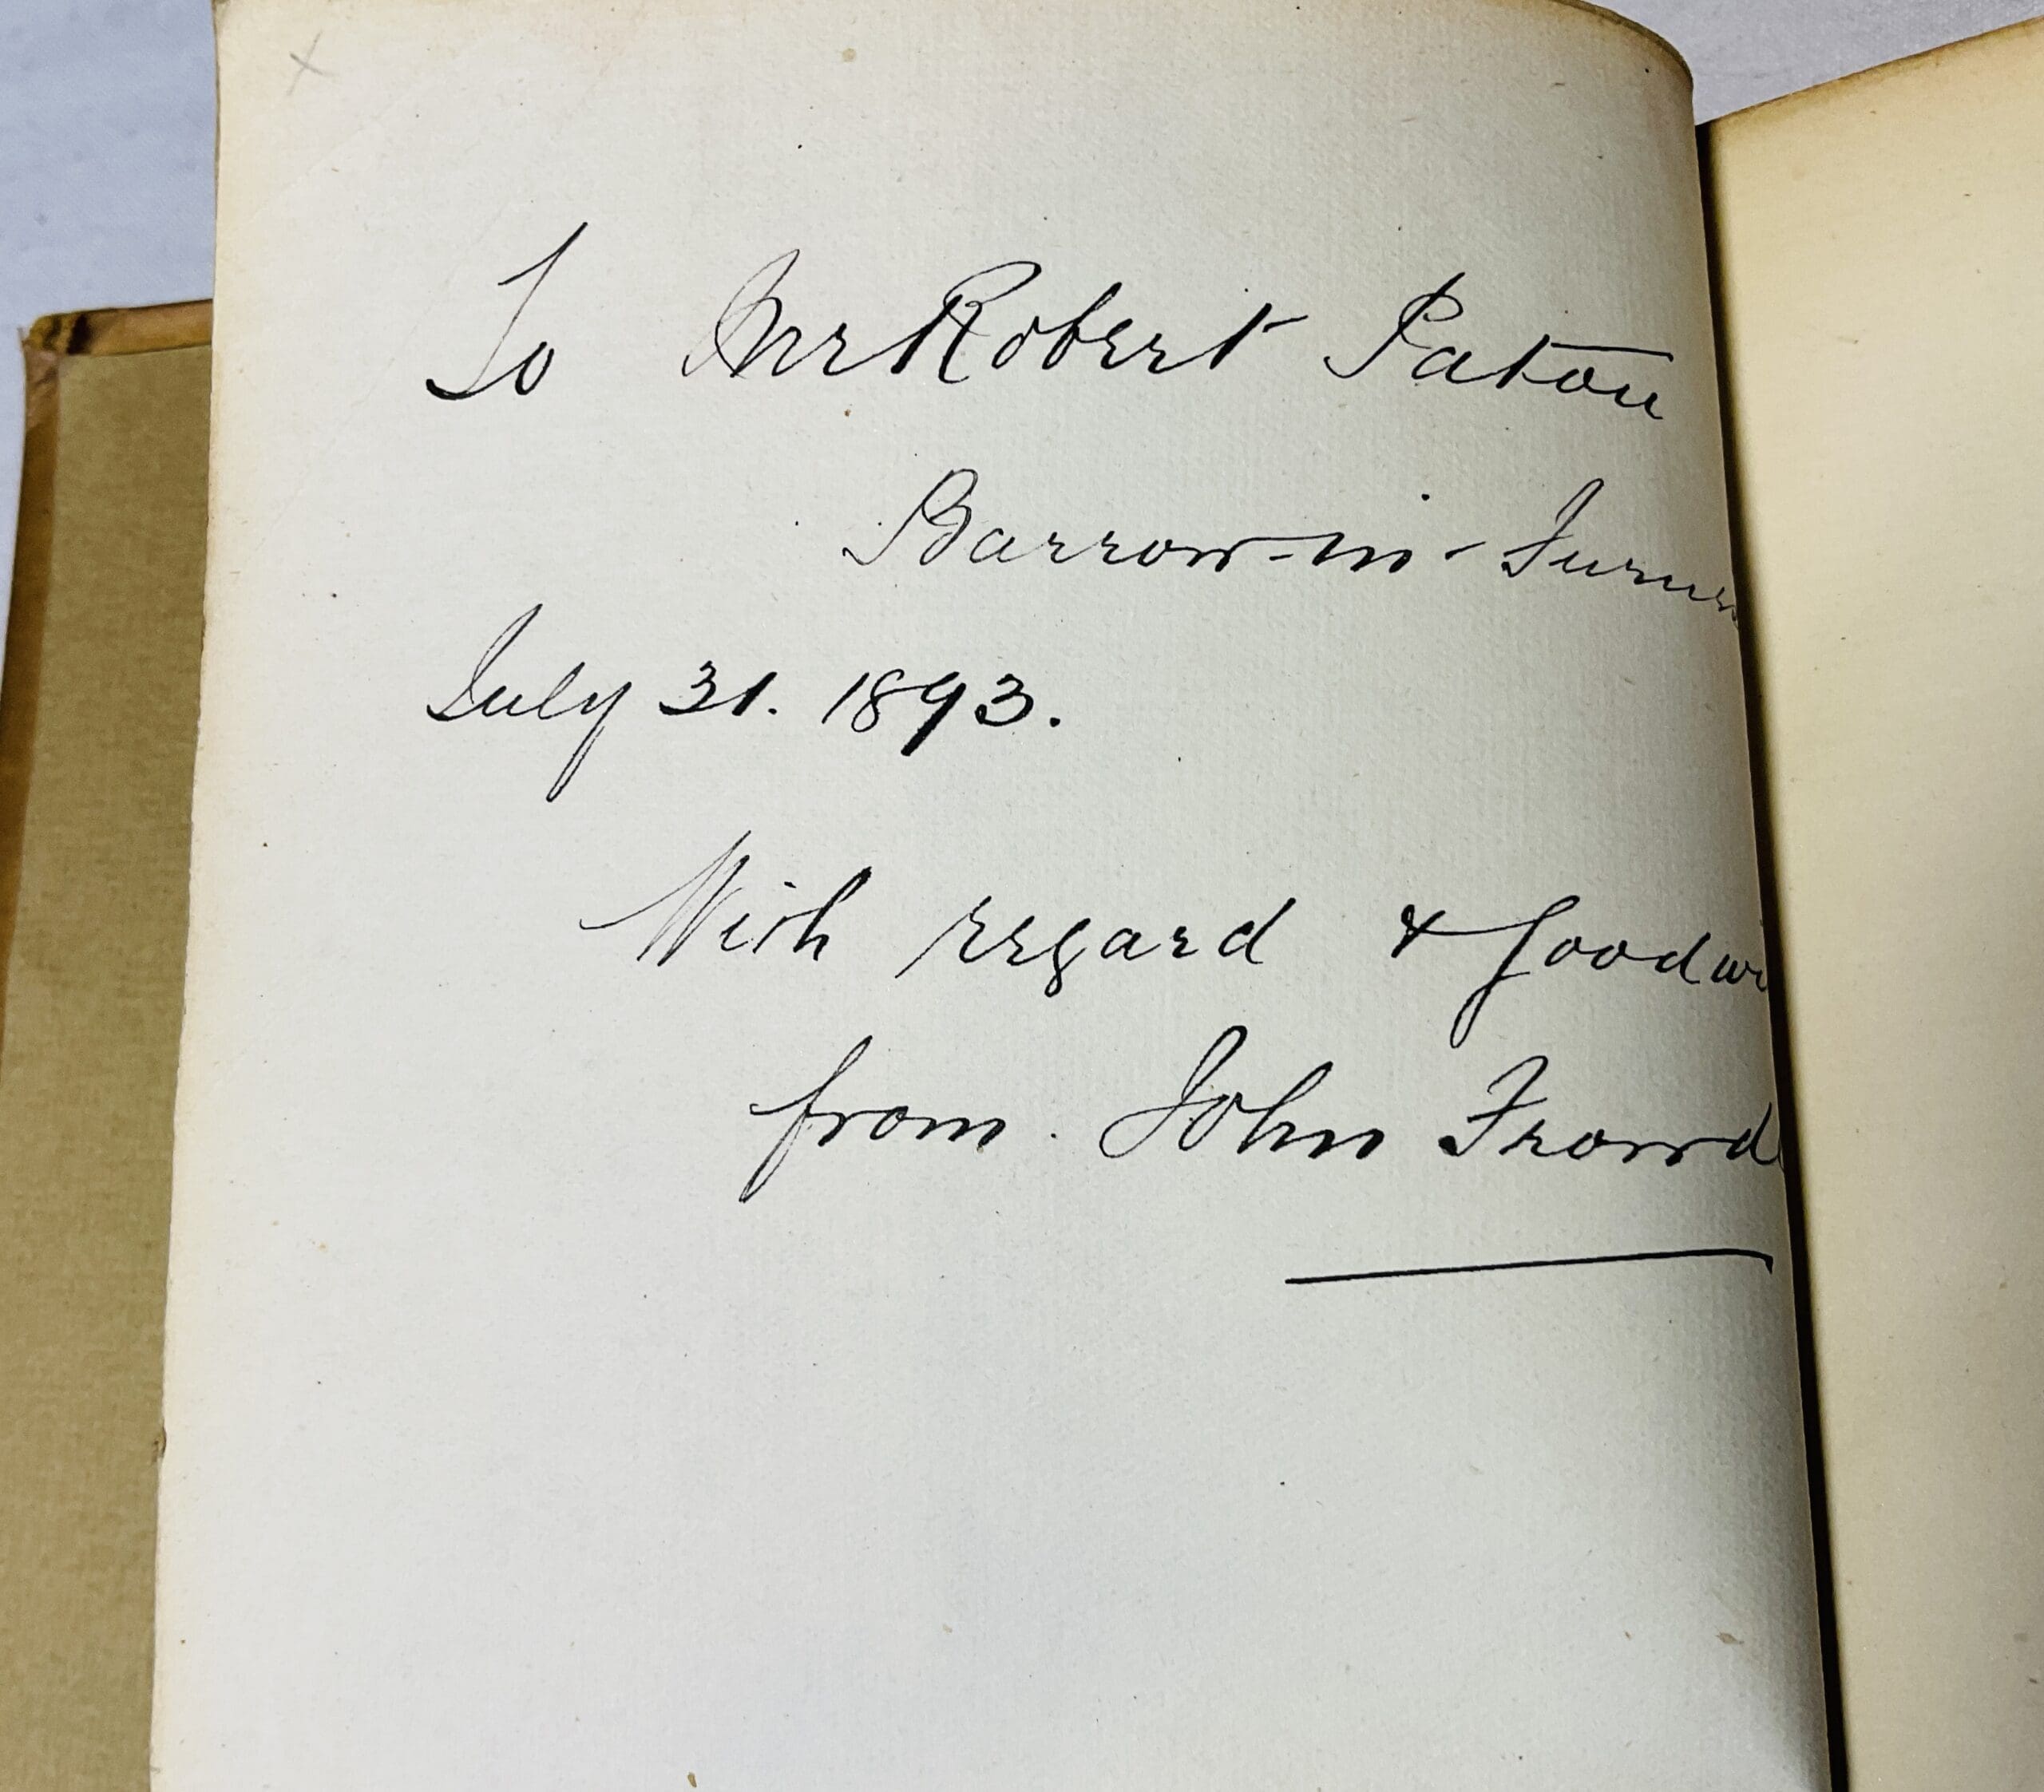 To Mr Robert Paton
Barrow-in-Furness
July 31. 1893.
With regard & Goodwi
from John Frowd